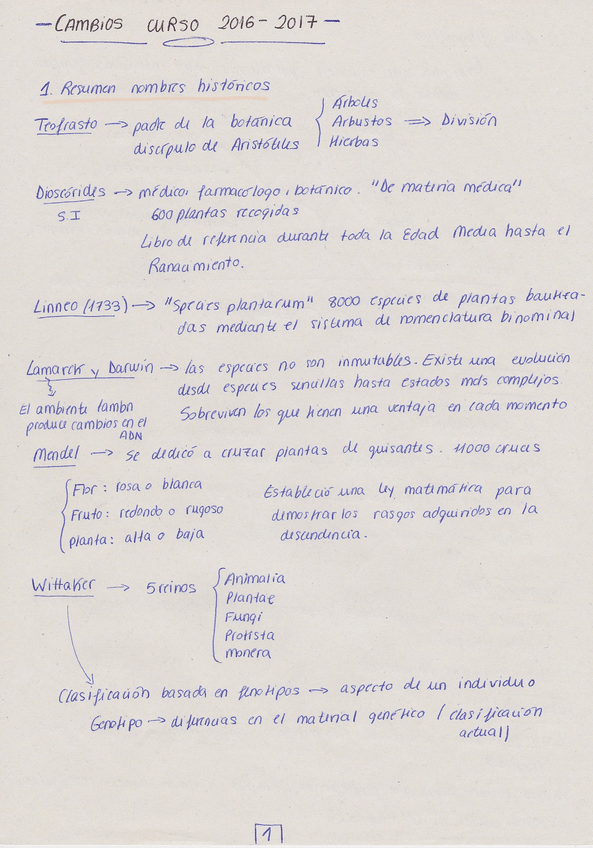 — CAMBIOS CURSO 2016-2017 —
1. Resumen nombres históricos
Teofrasto → padre de la botánica
discípulo de Aristóteles
Árboles
Arbustos ⇒ División
Hierbas
Dioscórides → médico, farmacólogo, botánico. "De materia médica"
S.I
600 plantas recogidas
Libro de referencia durante toda la Edad Media hasta el
Renacimiento.
Linneo (1733) → "Species plantarum" 8000 especies de plantas bautiza-
das mediante el sistema de nomenclatura binominal
Lamarck y Darwin → las especies no son inmutables. Existe una evolución
desde especies sencillas hasta estados más complejos.
Sobreviven los que tienen una ventaja en cada momento
El ambiente tambn
produce cambios en el
ADN
Mendel → Se dedicó a cruzar plantas de guisantes. 11000 cruces
Flor: rosa o blanca
Fruto: redondo o rugoso
planta: alta o baja
Estableció una ley matemática para
demostrar los rasgos adquiridos en la
descendencia.
Wittaker → 5 reinos
Animalia
Plantae
Fungi
Protista
Monera
Clasificación basada en fenotipos → aspecto de un individuo
Genotipo → diferencias en el material genético (clasificación
actual)
1